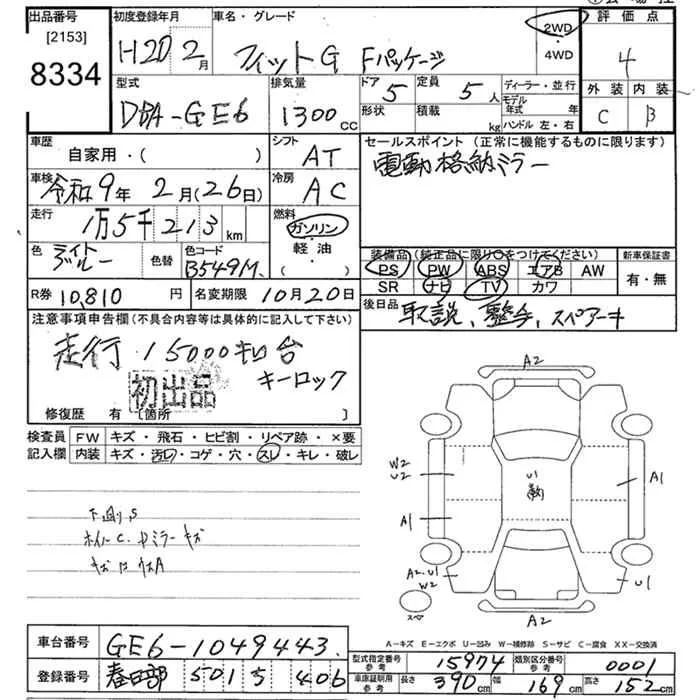 出品番号 初度登録年月 車名・グレード 評価点
[2153]
8334
H20 2月 フィットG Fパッケージ
2WD
・
4WD
4
外装 内装
C B
型式 排気量 ドア 定員 ディーラー・並行
DBA-GE6 1300cc 5 5人
形状 積載 kg
モデル年式 年
ハンドル 左・右
車歴 シフト セールスポイント (正常に機能するものに限ります)
自家用・( ) AT 電動格納ミラー
車検 冷房
令和9年 2月(26日) AC
走行 燃料
1万5千213km ガソリン
・
軽油
( ・ )
色 色替 色コード
ライトブルー B549M
装備品 (純正品に限り○をつけてください) 新車保証書
PS PW ABS エアB AW 有・無
SR ナビ TV カワ
R券 10,810円 名変期限 10月20日
後日品 取説、整手、スペアーキ
注意事項申告欄(不具合内容等は具体的に記入して下さい)
走行 15000キロ台
初出品 キーロック
修復歴 有 [箇所 ]
検査員 FW キズ・飛石・ヒビ割・リペア跡・×要
記入欄 内装 キズ・汚レ・コゲ・穴・スレ・キレ・破レ
下廻りS
A2
W2
U2
A1
A1
A2.U1
W2
U1
A2
スペア
A-キズ E-エクボ U-凹み W-補修跡 S-サビ C-腐食 XX-交換済
車台番号 GE6-1049443
登録番号 春日部 501 5 406
型式指定番号 参考 15974 類別区分番号 参考 0001
車庫証明用 参考 長さ 390cm 幅 169cm 高さ 152cm